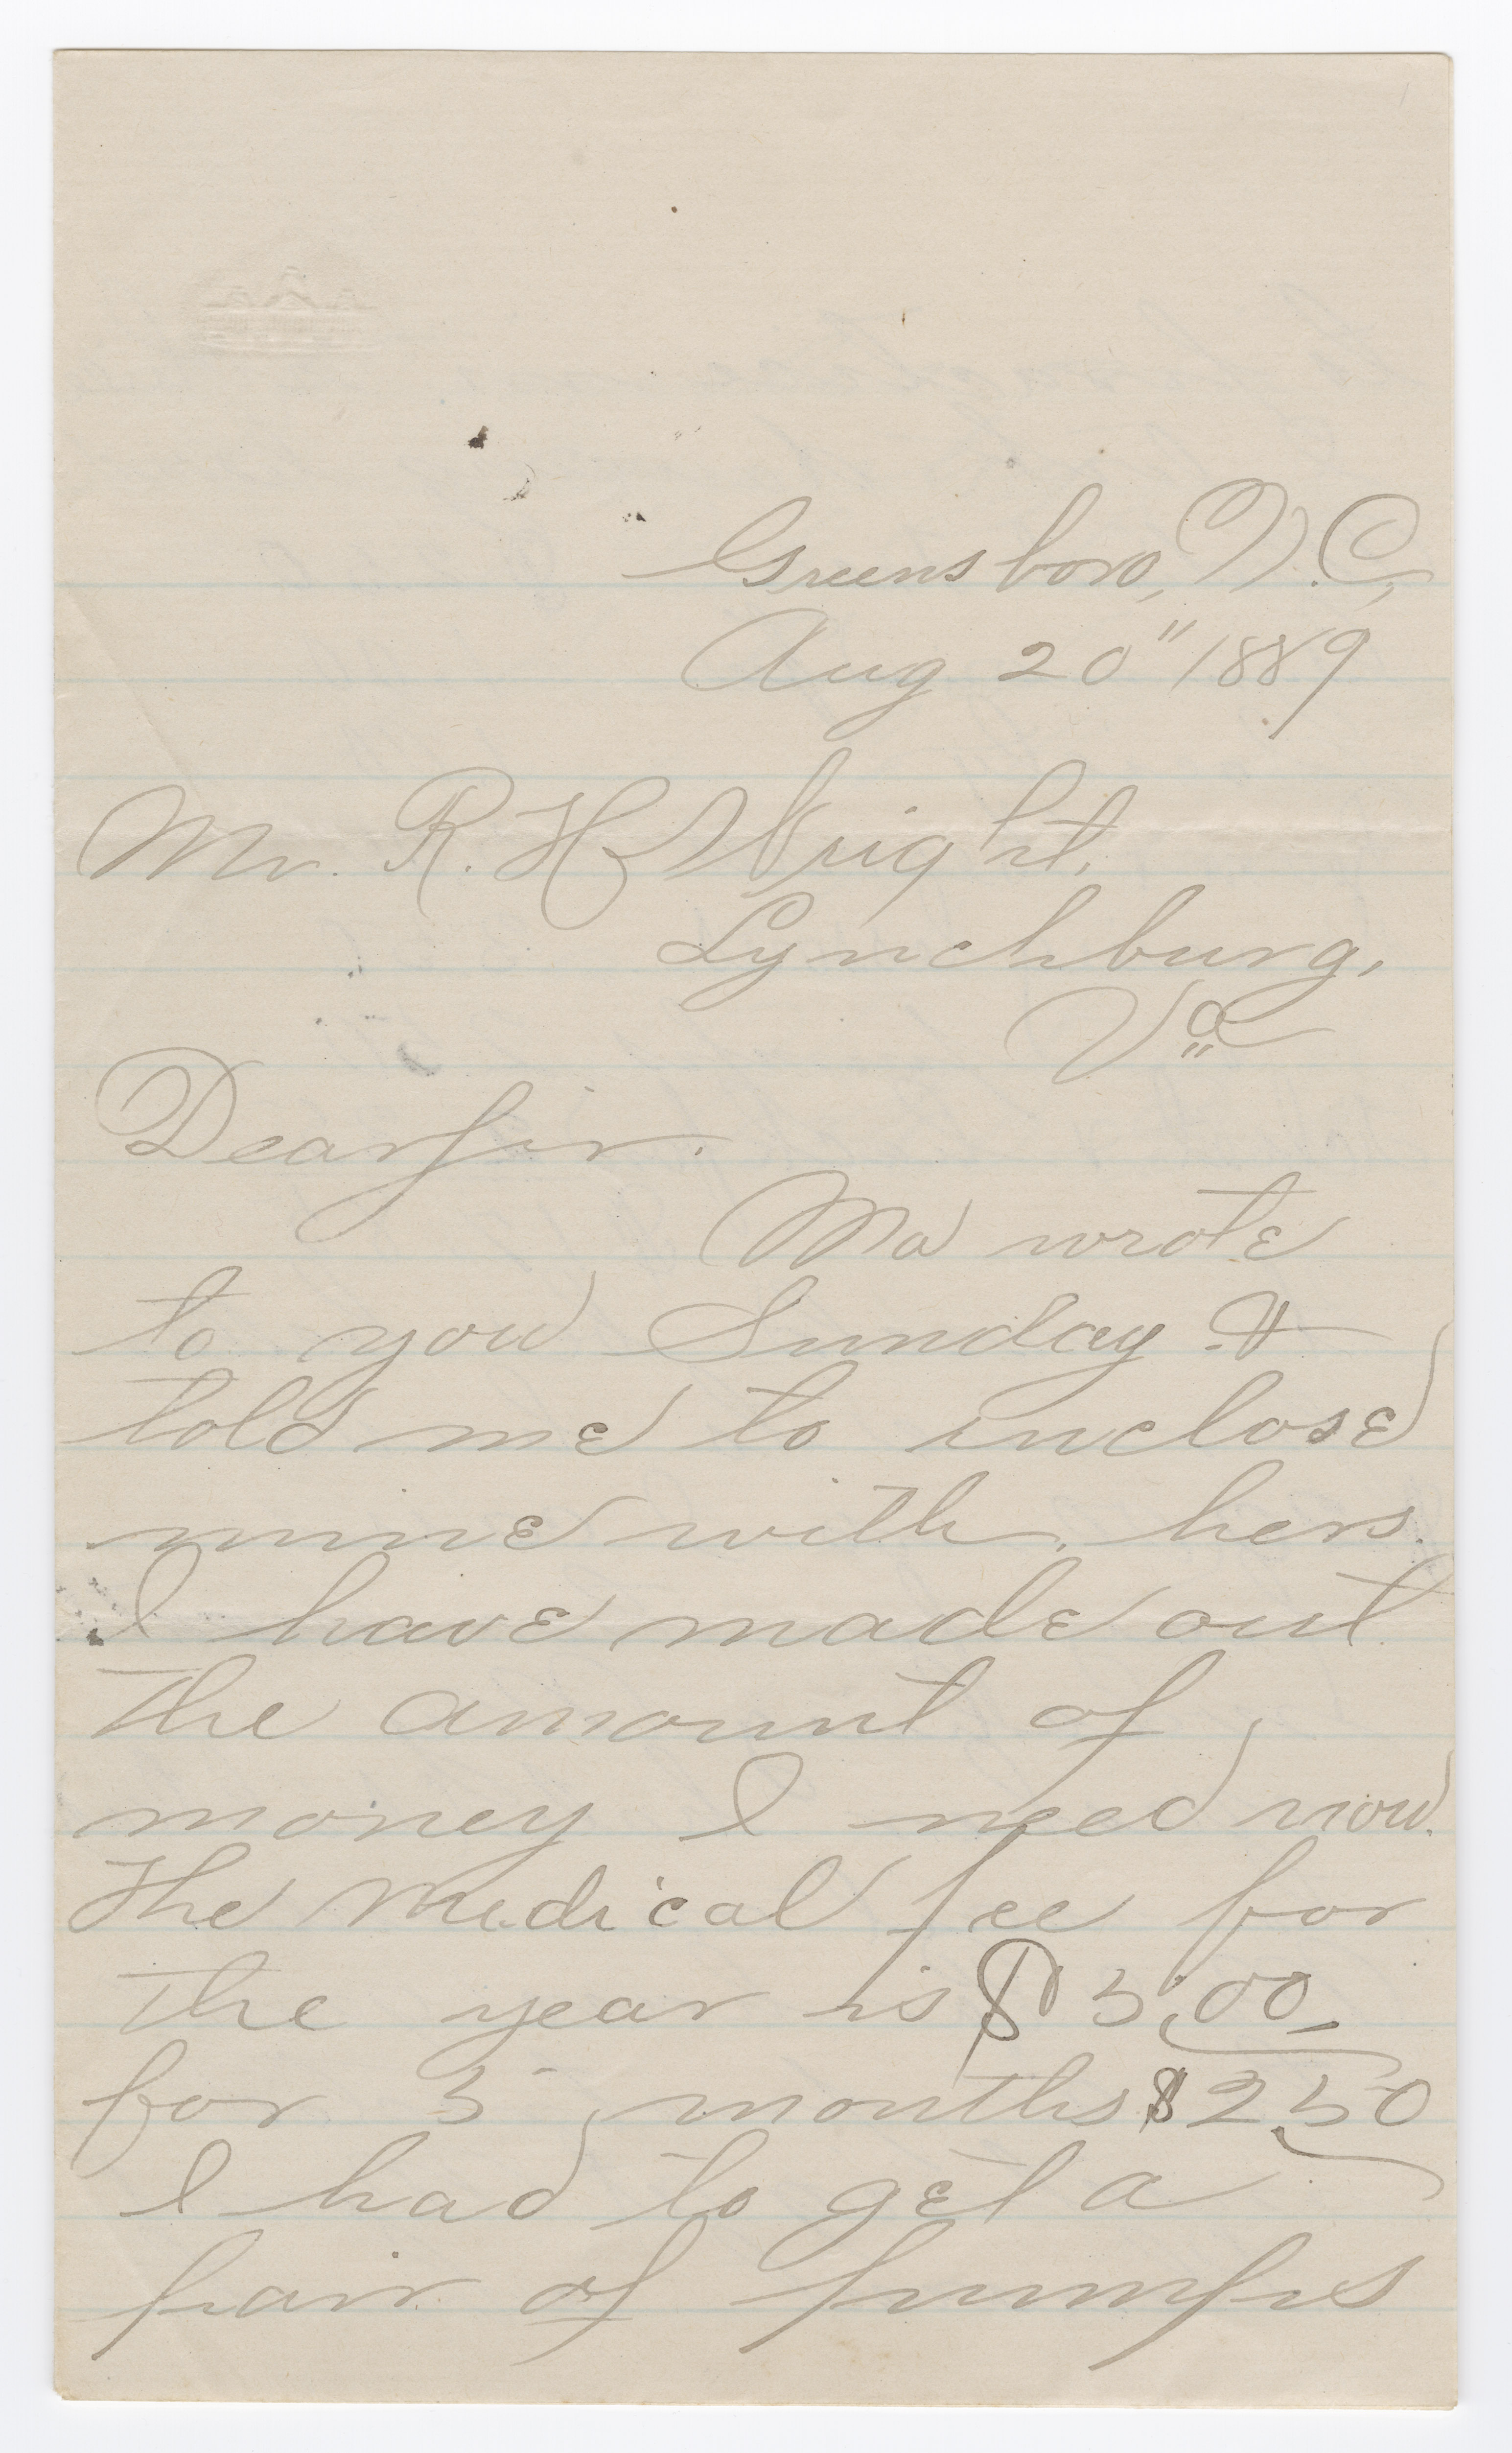 Greensboro, N.C,
Aug 20" 1889
Mr. R. H. Wright,
Lynchburg,
Va
Dear Sir.
Ma wrote
to you Sunday &
told me to inclose
mine with hers.
I have made out
the amount of
money I need now.
The Medical fee for
the year is $5.00
for 5 months $2.50
I had to get a
pair of pumps